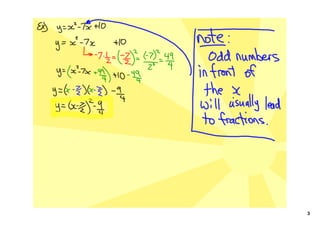 Ex) y=x²-7x+10
y = x²-7x +10
→ -7·½ = (-7/2)² = (-7)²/2² = 49/4
y=(x²-7x+49/4)+10-49/4
y=(x-7/2)(x-7/2) -9/4
y=(x-7/2)²-9/4
note:
Odd numbers
in front of
the x
will usually lead
to fractions.
3